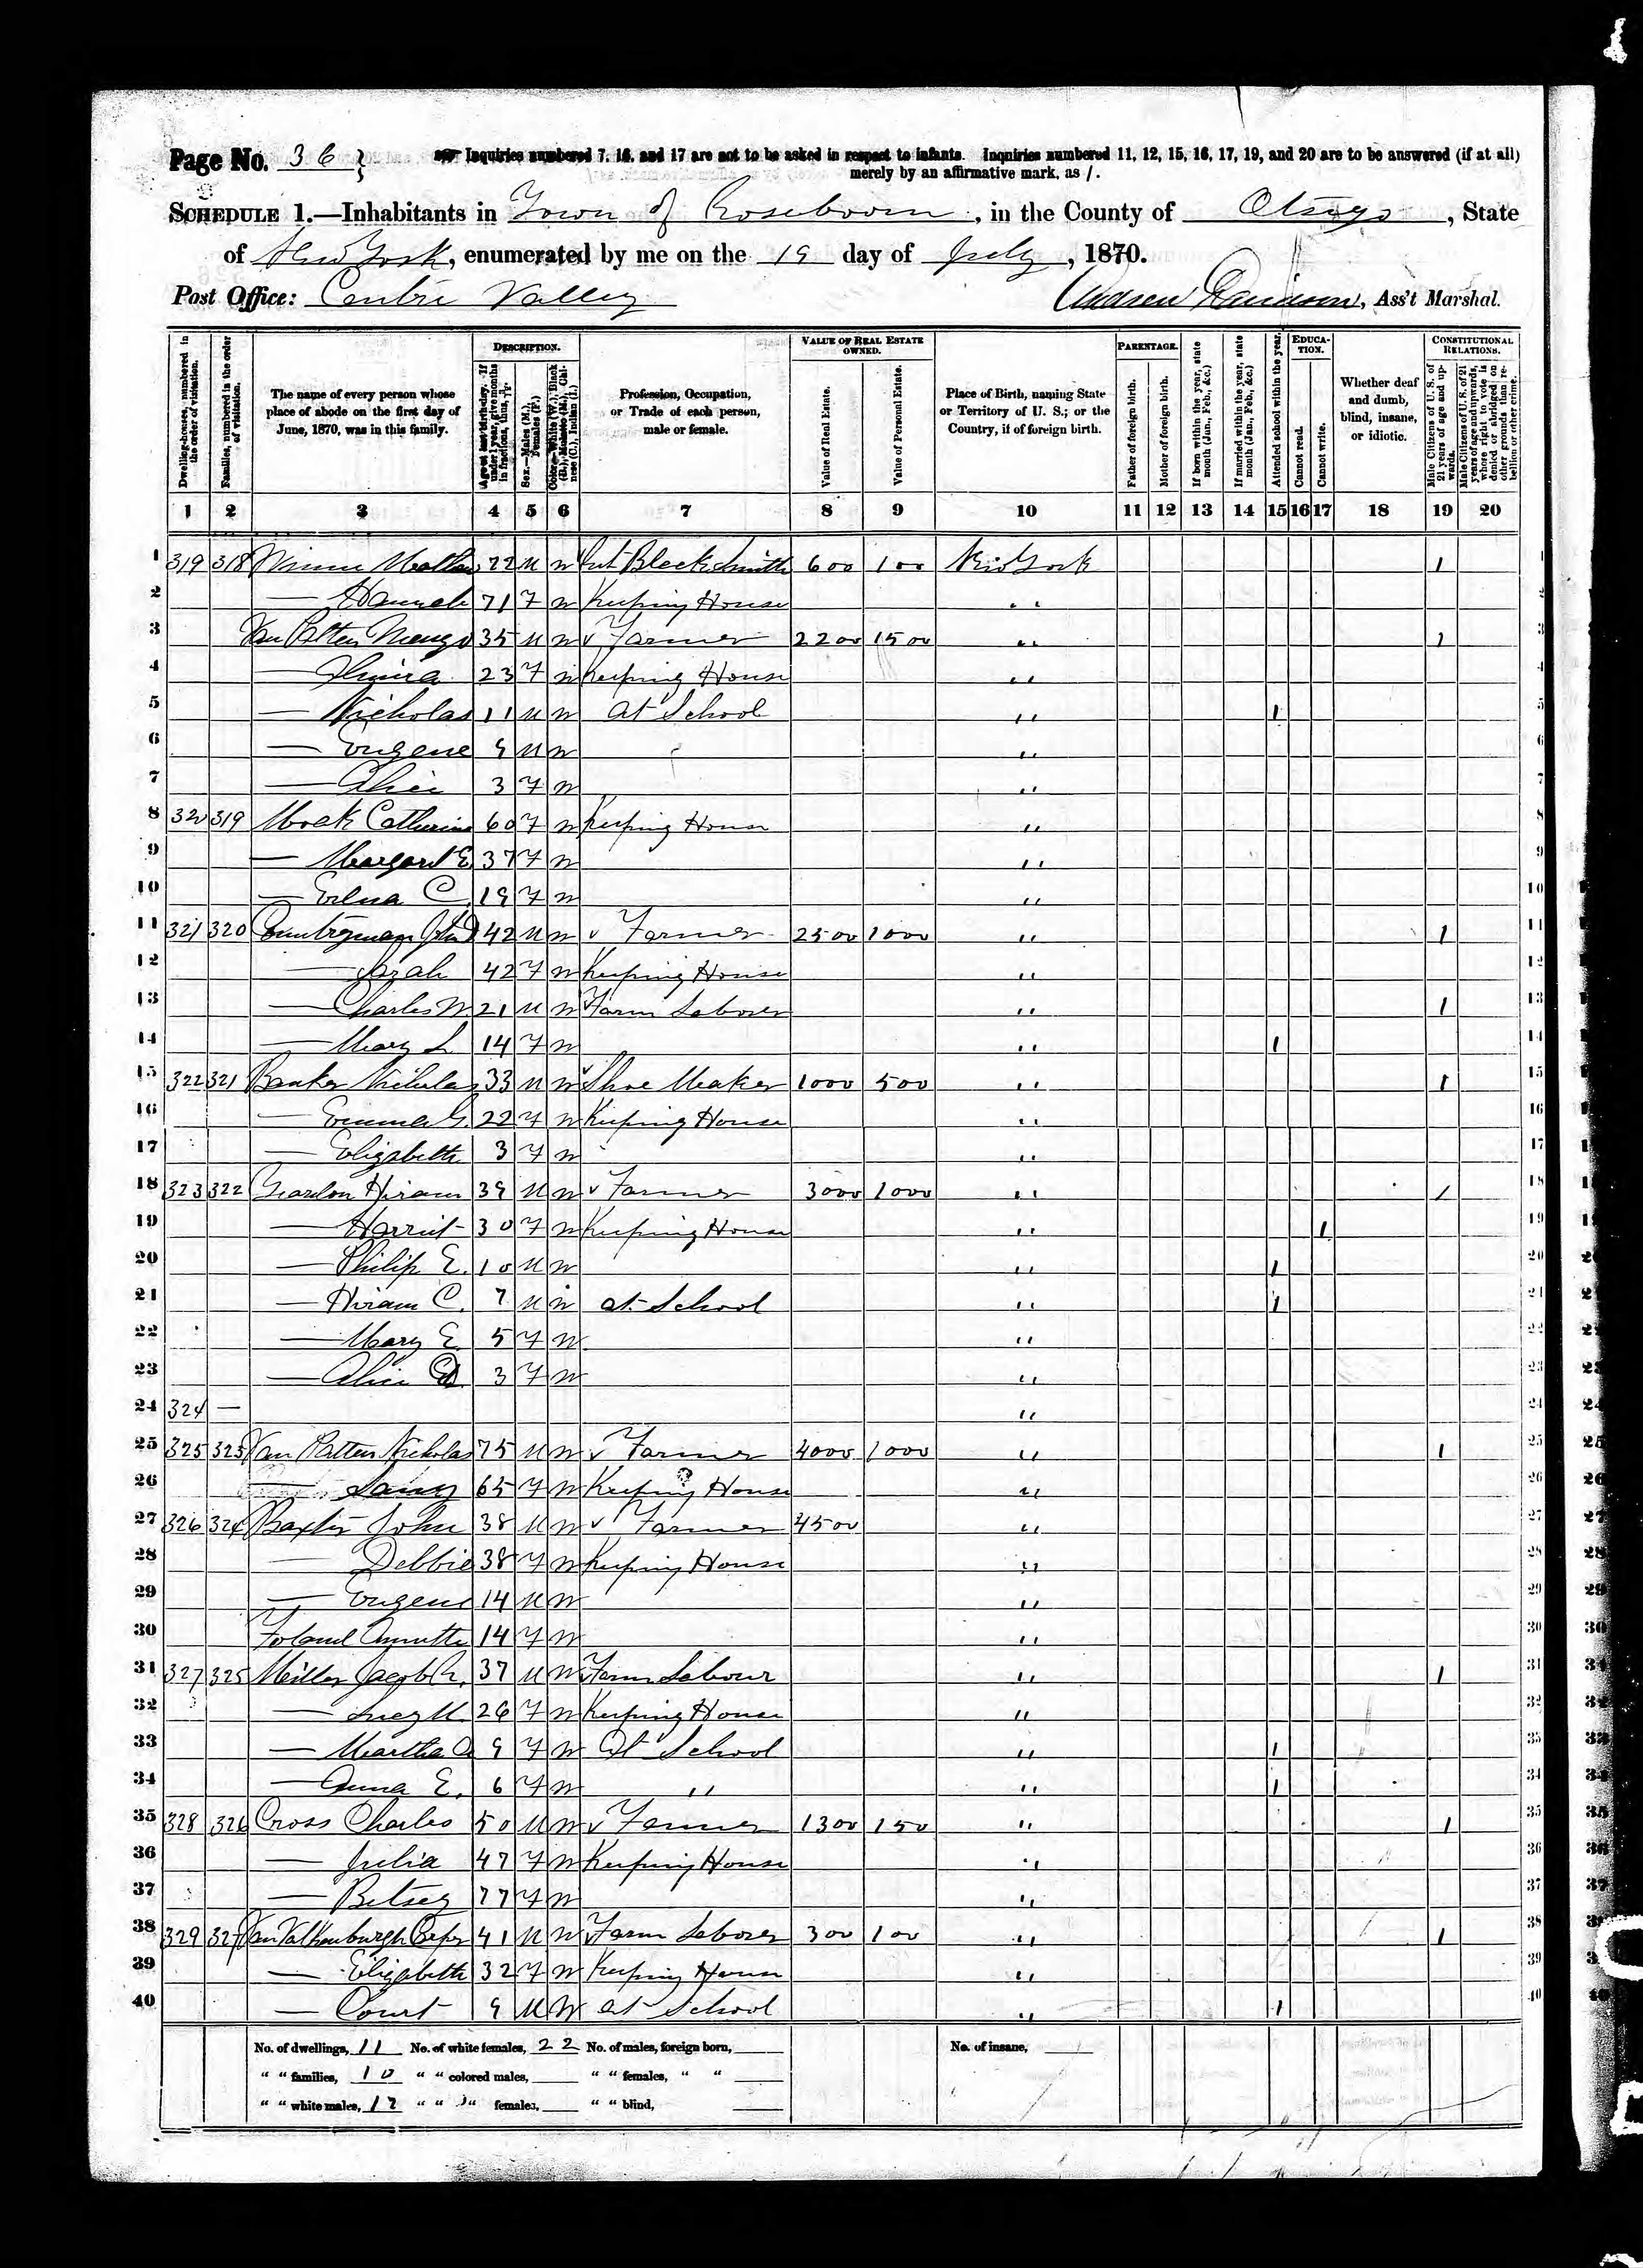 Page No. 36 }
Inquiries numbered 7, 16, and 17 are not to be asked in respect to infants. Inquiries numbered 11, 12, 15, 16, 17, 19, and 20 are to be answered (if at all)
merely by an affirmative mark, as /.
SCHEDULE 1.—Inhabitants in Town of Roseboom, in the County of Otsego, State
of New York, enumerated by me on the 19 day of July, 1870.
Post Office: Centre Valley
Andrew Davidson, Ass't Marshal.
DESCRIPTION. VALUE OF REAL ESTATE OWNED. PARENTAGE. EDUCATION. CONSTITUTIONAL RELATIONS.
Dwelling-houses, numbered in the order of visitation.
Families, numbered in the order of visitation.
The name of every person whose place of abode on the first day of June, 1870, was in this family.
Age at last birth-day. If under 1 year, give months in fractions, thus, 3/12.
Sex.—Males (M.), Females (F.)
Color.—White (W.), Black (B.), Mulatto (M.), Chinese (C.), Indian (I.)
Profession, Occupation, or Trade of each person, male or female.
Value of Real Estate.
Value of Personal Estate.
Place of Birth, naming State or Territory of U. S.; or the Country, if of foreign birth.
Father of foreign birth.
Mother of foreign birth.
If born within the year, state month (Jan., Feb., &c.)
If married within the year, state month (Jan., Feb., &c.)
Attended school within the year.
Cannot read.
Cannot write.
Whether deaf and dumb, blind, insane, or idiotic.
Male Citizens of U. S. of 21 years of age and upwards.
Male Citizens of U. S. of 21 years of age and upwards, whose right to vote is denied or abridged on other grounds than rebellion or other crime.
1 2 3 4 5 6 7 8 9 10 11 12 13 14 15 16 17 18 19 20
1 319 318 72 M W Black Smith 600 100 New York 1 1
2 — Hannah 71 F W Keeping House " 2
3 Van Patten 35 M W Farmer 2200 1500 " 1 3
4 — 23 F W Keeping House " 4
5 — Nicholas 11 M W At School " 1 5
6 — Eugene 9 M W " 6
7 — Alice 3 F W " 7
8 320 319 Moak Catherine 60 F W Keeping House " 8
9 — Margaret E. 37 F W " 9
10 — Edna C. 19 F W " 10
11 321 320 Countryman John 42 M W Farmer 2500 1000 " 1 11
12 — Sarah 42 F W Keeping House " 12
13 — Charles W. 21 M W Farm Laborer " 1 13
14 — Mary L. 14 F W " 1 14
15 322 321 Banker Nicholas 33 M W Shoe Maker 1000 500 " 1 15
16 — Emma G. 22 F W Keeping House " 16
17 — Elizabeth 3 F W " 17
18 323 322 Hiram 39 M W Farmer 3000 1000 " 1 18
19 — Harriet 30 F W Keeping House " 1 19
20 — Philip E. 10 M W " 1 20
21 — Hiram C. 7 M W at School " 1 21
22 — Mary E. 5 F W " 22
23 — Alice 3 F W " 23
24 324 — " 24
25 325 323 Van Patten Nicholas 75 M W Farmer 4000 1000 " 1 25
26 — 65 F W Keeping House " 26
27 326 324 Baxter John 38 M W Farmer 4500 " 27
28 — Debbie 38 F W Keeping House " 28
29 — Eugene 14 M W " 29
30 Foland 14 F W " 30
31 327 325 Miller Jacob 37 M W Farm Labour " 1 31
32 — Lucy M. 26 F W Keeping House " 32
33 — Martha 9 F W At School " 1 33
34 — Anna E. 6 F W " " 1 34
35 328 326 Cross Charles 50 M W Farmer 1300 150 " 1 35
36 — Julia 47 F W Keeping House " 36
37 — Betsey 77 F W " 37
38 329 327 Van Valkenburgh 41 M W Farm Laborer 300 100 " 1 38
39 — Elizabeth 32 F W Keeping House " 39
40 — Court 9 M W at School " 1 40
No. of dwellings, 11 No. of white females, 22 No. of males, foreign born, No. of insane,
" " families, 10 " " colored males, " " females, " "
" " white males, 17 " " " females, " " blind,